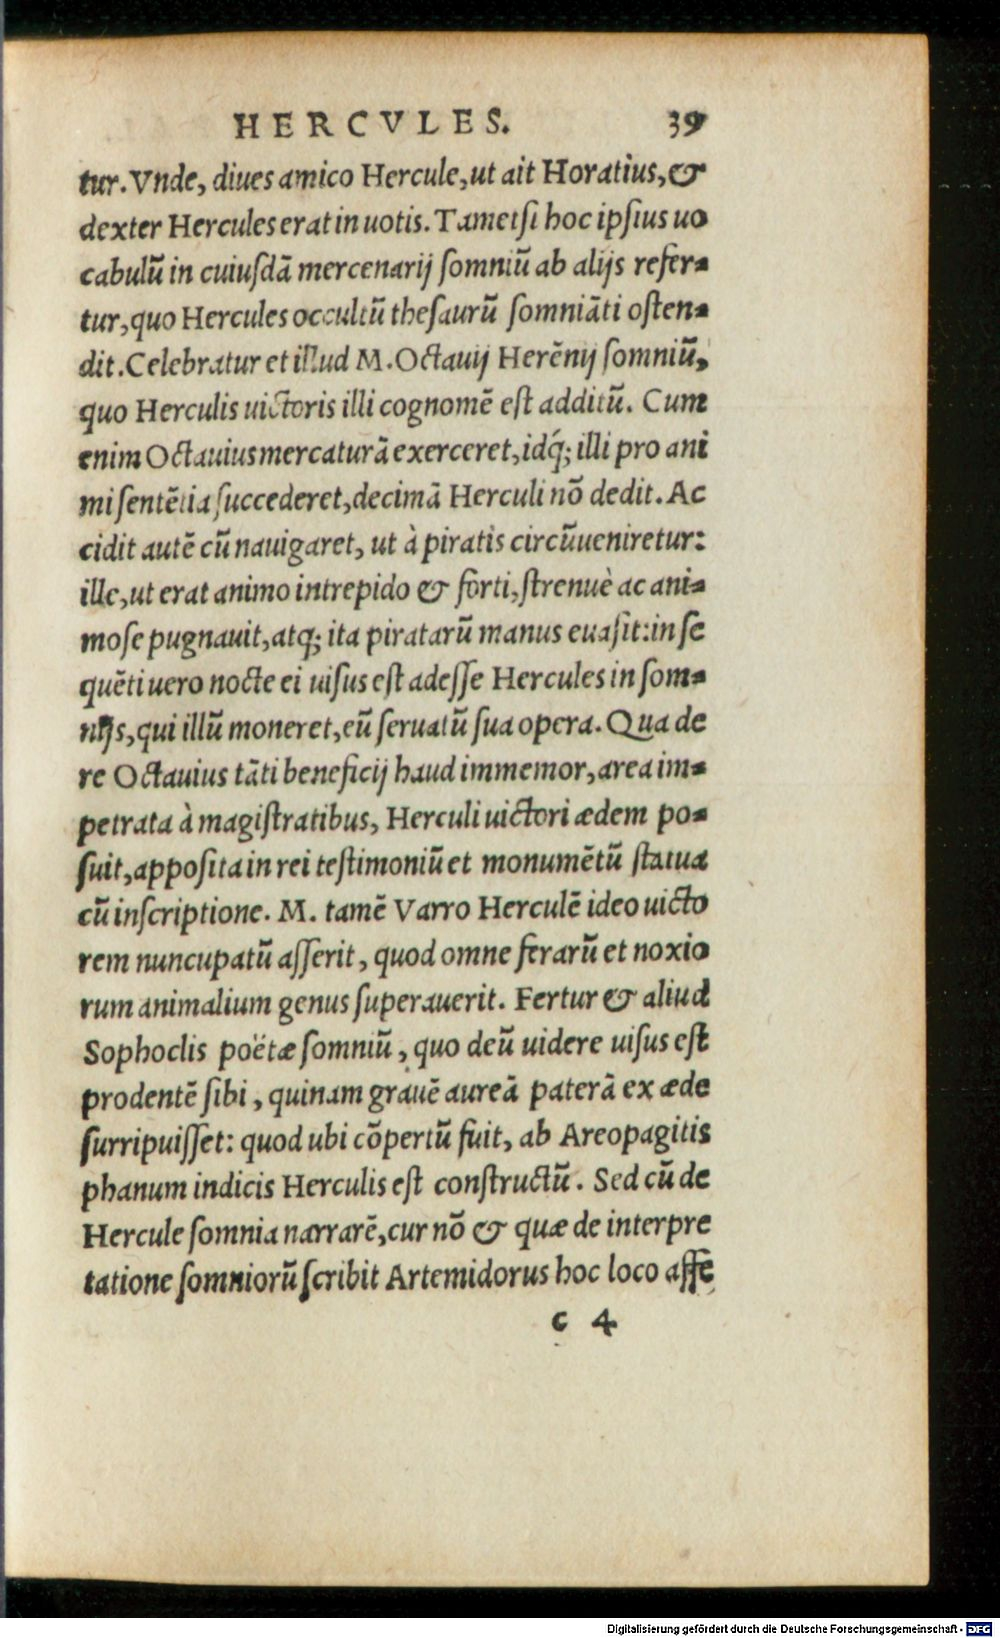 HERCVLES. 39
tur. Vnde, diues amico Hercule, ut ait Horatius, &
dexter Hercules erat in uotis. Tametsi hoc ipsius uo
cabulũ in cuiusdã mercenarij somniũ ab alijs refer-
tur, quo Hercules occultũ thesaurũ somniãti osten-
dit. Celebratur et illud M. Octauij Herẽnij somniũ,
quo Herculis uictoris illi cognomẽ est additũ. Cum
enim Octauius mercaturã exerceret, idq́; illi pro ani
mi sentẽtia succederet, decimã Herculi nõ dedit. Ac
cidit autẽ cũ nauigaret, ut à piratis circũueniretur:
ille, ut erat animo intrepido & forti, strenuè ac ani-
mose pugnauit, atq; ita piratarũ manus euasit: in se
quẽti uero nocte ei uisus est adesse Hercules in som-
nijs, qui illũ moneret, eũ seruatũ sua opera. Qua de
re Octauius tãti beneficij haud immemor, area im-
petrata à magistratibus, Herculi uictori ædem po-
suit, apposita in rei testimoniũ et monumẽtũ statua
cũ inscriptione. M. tamẽ Varro Herculẽ ideo uicto
rem nuncupatũ asserit, quod omne ferarũ et noxio
rum animalium genus superauerit. Fertur & aliud
Sophoclis poëtæ somniũ, quo deũ uidere uisus est
prodentẽ sibi, quinam grauẽ aureã paterã ex æde
surripuisset: quod ubi cõpertũ fuit, ab Areopagitis
phanum indicis Herculis est constructũ. Sed cũ de
Hercule somnia narrarẽ, cur nõ & quæ de interpre
tatione somniorũ scribit Artemidorus hoc loco asse
c 4
Digitalisierung gefördert durch die Deutsche Forschungsgemeinschaft - DFG